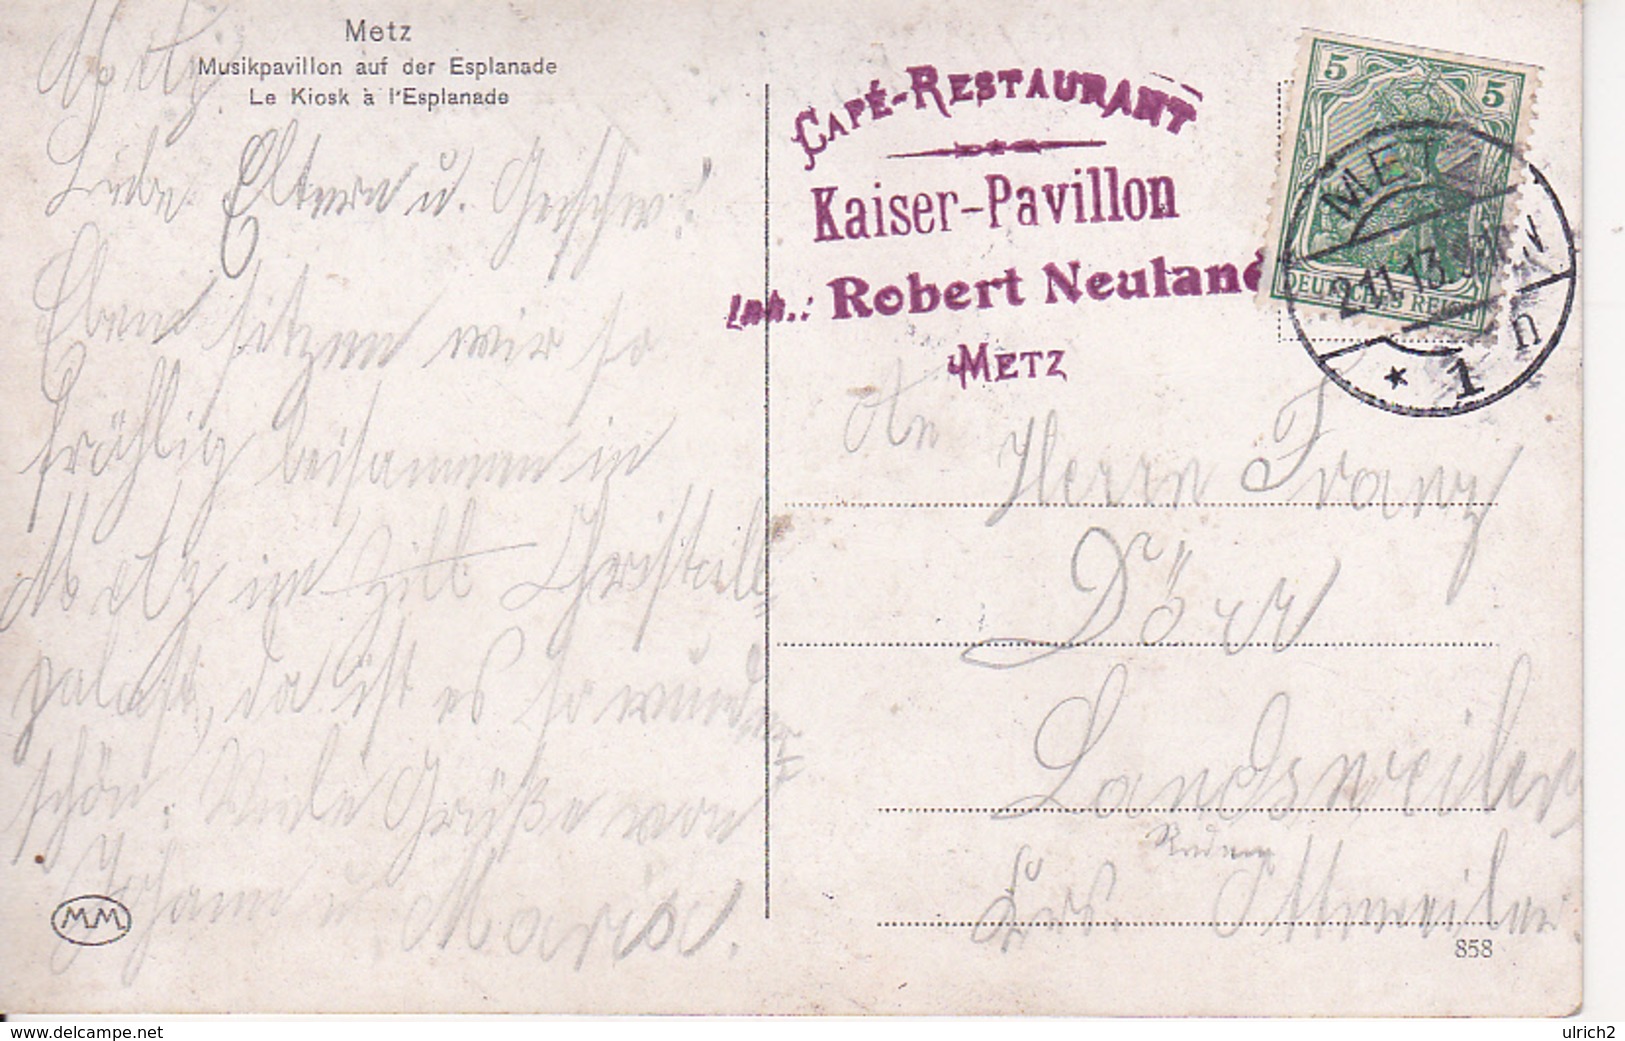 Metz
Musikpavillon auf der Esplanade
Le Kiosk à l'Esplanade
Metz
Liebe Eltern u. Geschw.!
Eben sitzen wir so
fröhlig beisammen in
Metz im Christall=
palast, da ist es so wunder=
schön. Viele Grüße von
Johann u. Maria.
MM
CAFÉ-RESTAURANT
Kaiser-Pavillon
Inh.: Robert Neuland
METZ
5 5
DEUTSCHES REICH
METZ
2.11.13.
* 1 n
An
Herrn Franz
Dörr
Landsweiler
Reden
Krs. Ottweiler.
858
www.delcampe.net
ulrich2